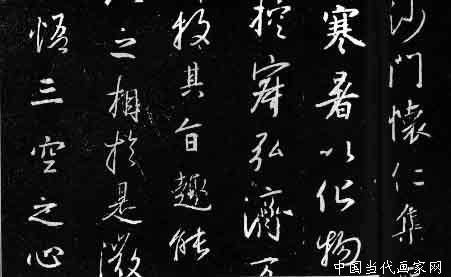 沙門懷仁集
寒暑以化物
控寂弘濟万
投其旨趣能
之相於是微
悟三空之心
中国当代画家网